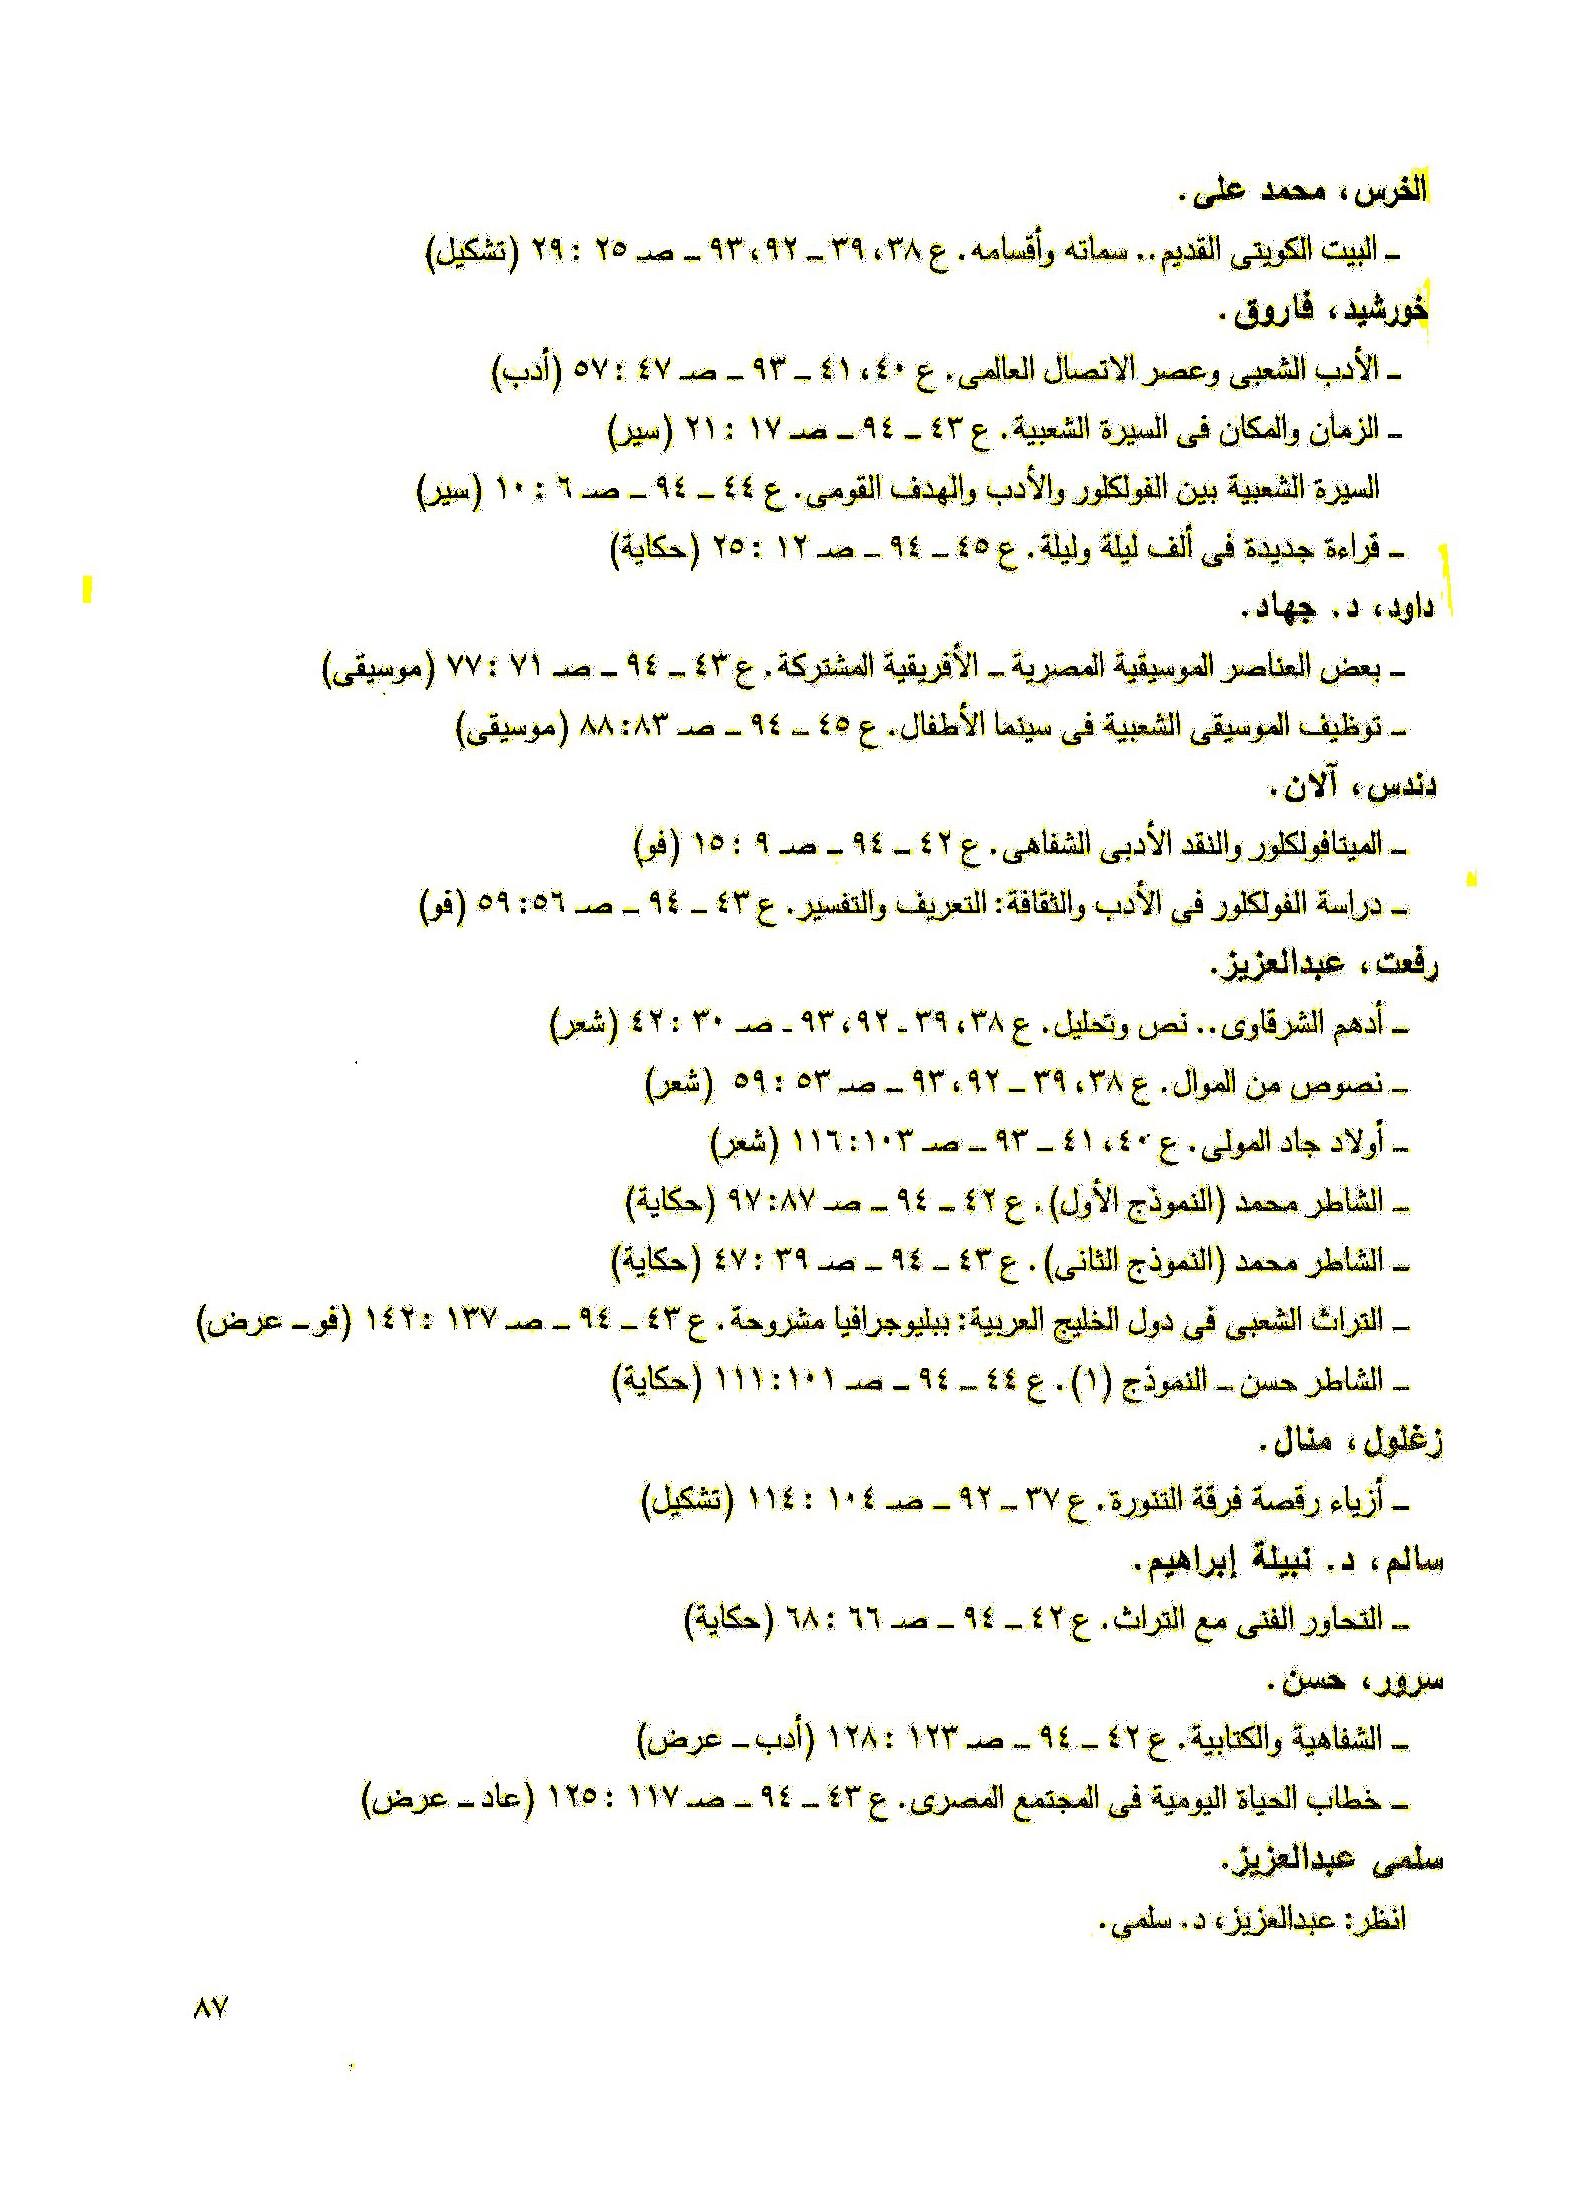 الخرس، محمد على.
ـ البيت الكويتى القديم.. سماته وأقسامه. ع ٣٨، ٣٩ ـ ٩٢، ٩٣ ـ صـ ٢٥ : ٢٩ (تشكيل)
خورشيد، فاروق.
ـ الأدب الشعبى وعصر الاتصال العالمى. ع ٤٠، ٤١ ـ ٩٣ ـ صـ ٤٧ : ٥٧ (أدب)
ـ الزمان والمكان فى السيرة الشعبية. ع ٤٣ ـ ٩٤ ـ صـ ١٧ : ٢١ (سير)
السيرة الشعبية بين الفولكلور والأدب والهدف القومى. ع ٤٤ ـ ٩٤ ـ صـ ٦ : ١٠ (سير)
ـ قراءة جديدة فى ألف ليلة وليلة. ع ٤٥ ـ ٩٤ ـ صـ ١٢ : ٢٥ (حكاية)
داود، د. جهاد.
ـ بعض العناصر الموسيقية المصرية ـ الأفريقية المشتركة. ع ٤٣ ـ ٩٤ ـ صـ ٧١ : ٧٧ (موسيقى)
ـ توظيف الموسيقى الشعبية فى سينما الأطفال. ع ٤٥ ـ ٩٤ ـ صـ ٨٣ : ٨٨ (موسيقى)
دندس، آلان.
ـ الميتافولكلور والنقد الأدبى الشفاهى. ع ٤٢ ـ ٩٤ ـ صـ ٩ : ١٥ (فو)
ـ دراسة الفولكلور فى الأدب والثقافة: التعريف والتفسير. ع ٤٣ ـ ٩٤ ـ صـ ٥٦ : ٥٩ (فو)
رفعت، عبدالعزيز.
ـ أدهم الشرقاوى.. نص وتحليل. ع ٣٨، ٣٩ ـ ٩٢، ٩٣ ـ صـ ٣٠ : ٤٢ (شعر)
ـ نصوص من الموال. ع ٣٨، ٣٩ ـ ٩٢، ٩٣ ـ صـ ٥٣ : ٥٩ (شعر)
ـ أولاد جاد المولى. ع ٤٠، ٤١ ـ ٩٣ ـ صـ ١٠٣ : ١١٦ (شعر)
ـ الشاطر محمد (النموذج الأول). ع ٤٢ ـ ٩٤ ـ صـ ٨٧ : ٩٧ (حكاية)
ـ الشاطر محمد (النموذج الثانى). ع ٤٣ ـ ٩٤ ـ صـ ٣٩ : ٤٧ (حكاية)
ـ التراث الشعبى فى دول الخليج العربية: ببليوجرافيا مشروحة. ع ٤٣ ـ ٩٤ ـ صـ ١٣٧ : ١٤٢ (فو ـ عرض)
ـ الشاطر حسن ـ النموذج (١). ع ٤٤ ـ ٩٤ ـ صـ ١٠١ : ١١١ (حكاية)
زغلول، منال.
ـ أزياء رقصة فرقة التنورة. ع ٣٧ ـ ٩٢ ـ صـ ١٠٤ : ١١٤ (تشكيل)
سالم، د. نبيلة إبراهيم.
ـ التحاور الفنى مع التراث. ع ٤٢ ـ ٩٤ ـ صـ ٦٦ : ٦٨ (حكاية)
سرور، حسن.
ـ الشفاهية والكتابية. ع ٤٢ ـ ٩٤ ـ صـ ١٢٣ : ١٢٨ (أدب ـ عرض)
ـ خطاب الحياة اليومية فى المجتمع المصرى. ع ٤٣ ـ ٩٤ ـ صـ ١١٧ : ١٢٥ (عاد ـ عرض)
سلمى عبدالعزيز.
انظر: عبدالعزيز، د. سلمى.
٨٧